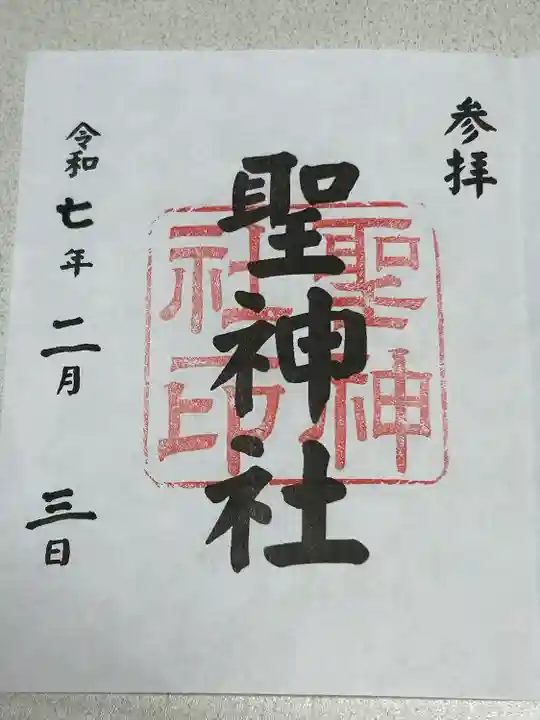 参拝
聖神社
聖神
社印
令和七年二月三日